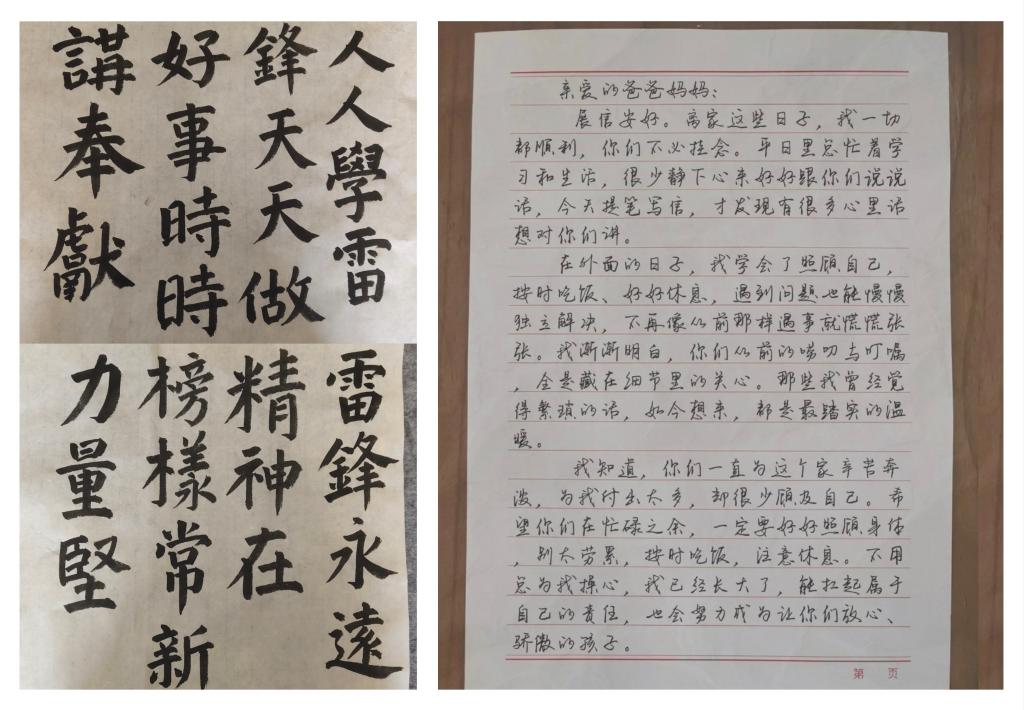 人人學雷
鋒天天做
好事時時
講奉獻
雷鋒永遠
精神在
榜樣常新
力量堅
亲爱的爸爸妈妈：
展信安好。离家这些日子，我一切
都顺利，你们不必挂念。平日里总忙着学
习和生活，很少静下心来好好跟你们说说
话，今天提笔写信，才发现有很多心里话
想对你们讲。
在外面的日子，我学会了照顾自己，
按时吃饭、好好休息，遇到问题也能慢慢
独立解决，不再像从前那样遇事就慌慌张
张。我渐渐明白，你们从前的唠叨与叮嘱
，全是藏在细节里的关心。那些我曾经觉
得繁琐的话，如今想来，都是最踏实的温
暖。
我知道，你们一直为这个家辛苦奔
波，为我付出太多，却很少顾及自己。希
望你们在忙碌之余，一定要好好照顾身体
，别太劳累，按时吃饭，注意休息。不用
总为我操心，我已经长大了，能扛起属于
自己的责任，也会努力成为让你们放心、
骄傲的孩子。
第 页